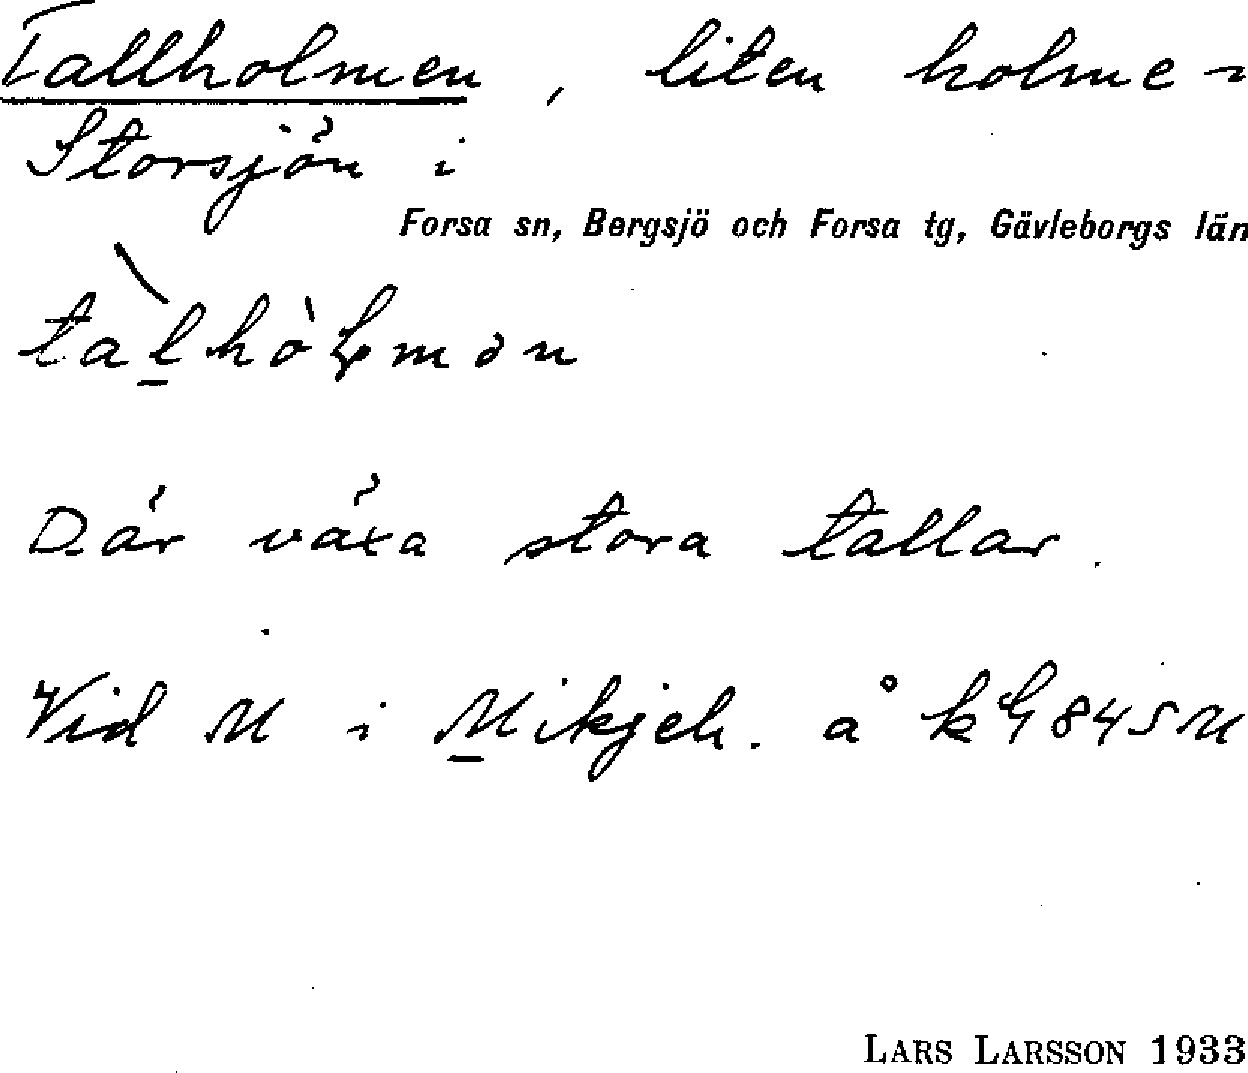 Tallholmen, liten holme i
Storsjön i
Forsa sn, Bergsjö och Forsa tg, Gävleborgs län
Där växa stora tallar.
Vid M i Mikjeh. å k G 845 M
LARS LARSSON 1933